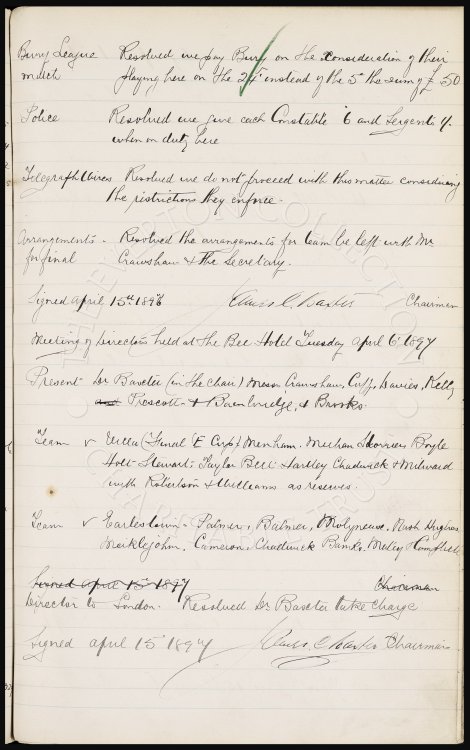 Bury League Resolved we pay Bury on the consideration of their
match playing here on the 24th instead of the 5th the sum of £50
Police Resolved we give each Constable 6 and Sergents 4/-
when on duty here
Telegraph Wires Resolved we do not proceed with this matter considering
the ristrictions they enforce.
Arrangements - Resolved the arrangements for team be left with Mr
for final Crawshaw & the Secretary.
Signed April 15th 1897 James C. Baxter Chairman
Meeting of Directors held at the Bee Hotel Tuesday April 6th 1897
Present Dr Baxter (in the chair) Messrs Crawshaw, Cuff, Davies, Kelly
and Prescott & Bainbridge, & Brooks.
Team v Villa (Final E Cup) Menham. Meehan Storrier Boyle
Holt Stewart. Taylor Bell Hartley Chadwick & Milward
with Robertson & Williams as reserves.
Team v Earlestown. Palmer, Balmer, Molyneux, Nash Hughes
Meiklejohn, Cameron, Chadwick Banks. Maley & Campbell
Signed April 15th 1897 Chairman
Director to London. Resolved Dr Baxter take charge
Signed April 15th 1897 James C Baxter Chairman
THE EVERTON COLLECTION
CHARITABLE TRUST